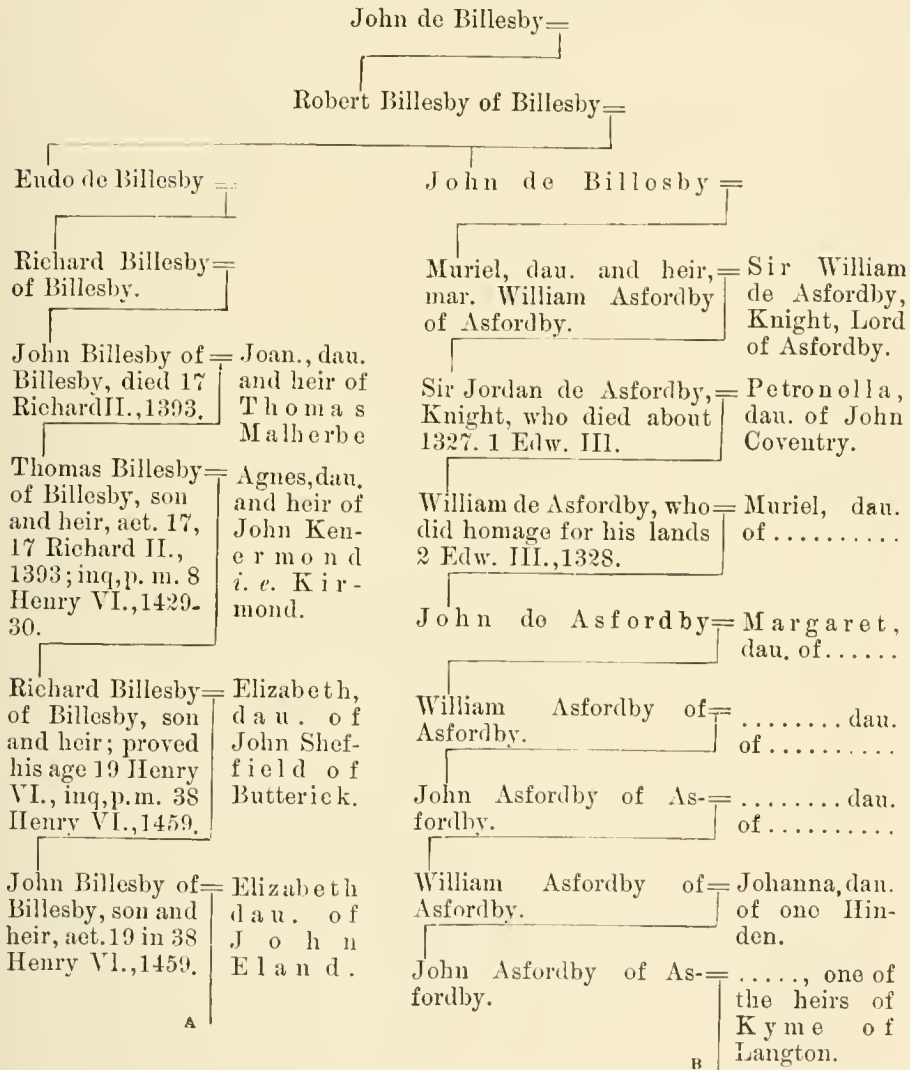 John de Billesby=
Robert Billesby of Billesby=
Eudo de Billesby =
Richard Billesby=
of Billesby.
John Billesby of =
Billesby, died 17
Richard II., 1393.
Joan., dau.
and heir of
Thomas
Malherbe
Thomas Billesby=
of Billesby, son
and heir, aet. 17,
17 Richard II.,
1393; inq, p. m. 8
Henry VI., 1429-
30.
Agnes, dau.
and heir of
John Ken-
ermond
i. e. Kir-
mond.
Richard Billesby=
of Billesby, son
and heir; proved
his age 19 Henry
VI., inq, p.m. 38
Henry VI., 1459.
Elizabeth,
dau. of
John Shef-
field of
Butterick.
John Billesby of=
Billesby, son and
heir, aet. 19 in 38
Henry VI., 1459.
Elizabeth
dau. of
John
Eland.
A
John de Billosby =
Muriel, dau. and heir,=
mar. William Asfordby
of Asfordby.
Sir William
de Asfordby,
Knight, Lord
of Asfordby.
Sir Jordan de Asfordby,=
Knight, who died about
1327. 1 Edw. III.
Petronolla,
dau. of John
Coventry.
William de Asfordby, who=
did homage for his lands
2 Edw. III., 1328.
Muriel, dau.
of ..........
John de Asfordby=
Margaret,
dau. of......
William Asfordby of=
Asfordby.
........ dau.
of ..........
John Asfordby of As-=
fordby.
........ dau.
of ..........
William Asfordby of=
Asfordby.
Johanna, dau.
of one Hin-
den.
John Asfordby of As-=
fordby.
....., one of
the heirs of
Kyme of
Langton.
B